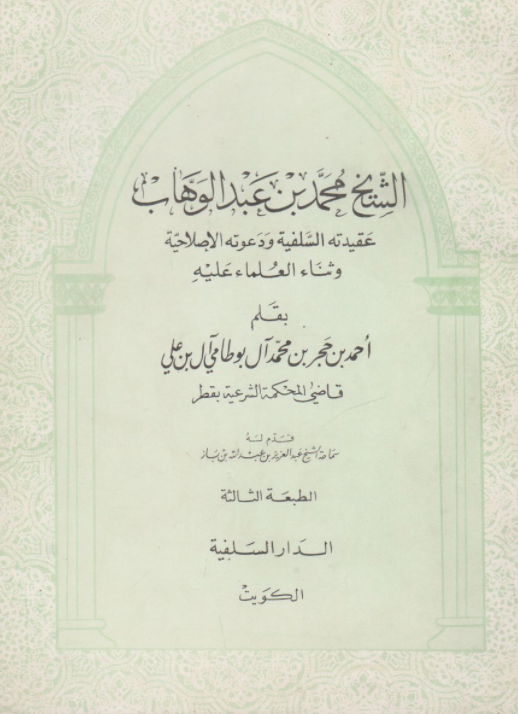 الشيخ محمَّد بن عَبد الوَهاب
عَقيدته السَّلفية وَدَعوته الإصلاحيّة
وثنَاء العُلماء عَليْهِ
بقَلم
أحمد بن حجر بن محمّد آل بوطامي آل بن علي
قاضي المحكمة الشرعية بقطر
قدّم له
سَماحة الشيخ عبد العزيز بن عبد الله بن باز
الطبعَة الثالثة
الدار السَلفِية
الكويت